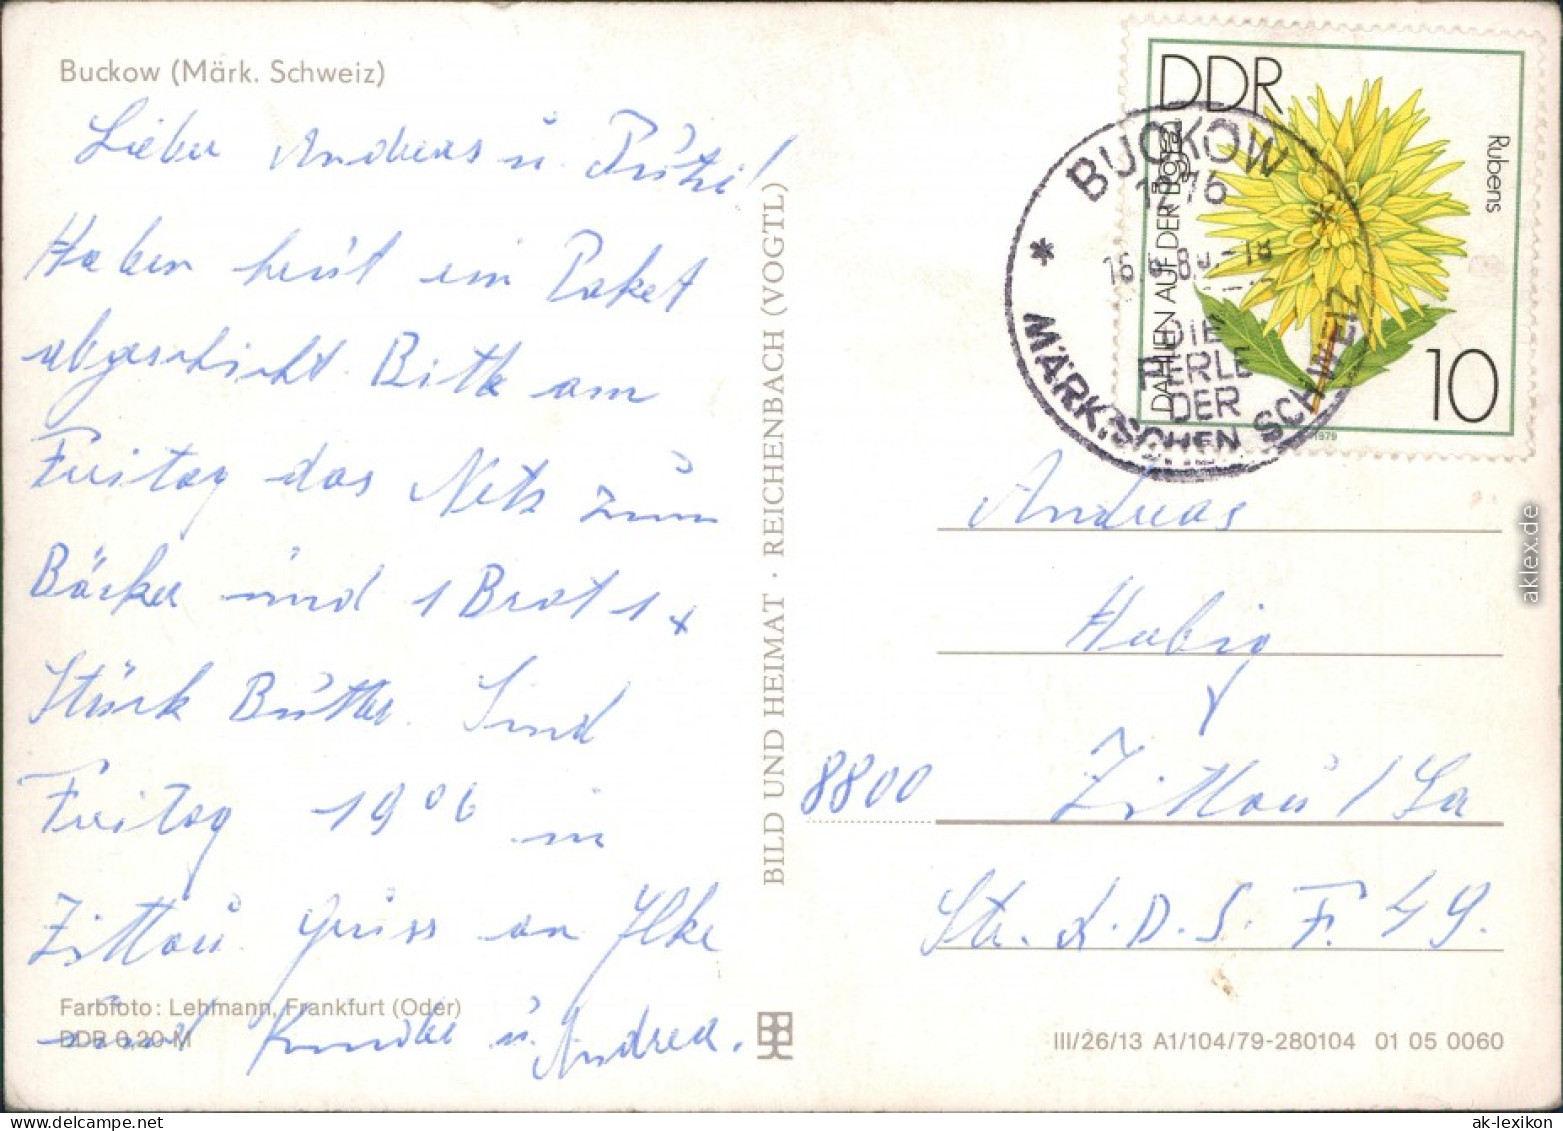 Buckow (Märk. Schweiz)
Lieber Andreas u.
Haben heut ein Paket
abgeschickt. Bitte am
Freitag das Netz zum
Bäcker und 1 Brot 1 x
Stück Butter. Sind
Freitag 19 06 in
Zittau. Gruss an Ilke
und u. Andrea.
Farbfoto: Lehmann, Frankfurt (Oder)
DDR 0,20 M
BILD UND HEIMAT · REICHENBACH (VOGTL)
DDR
Rubens
DAHLIEN AUF DER
10
1979
BUCKOW
1276
DIE
PERLE
DER
MÄRKISCHEN SCHWEIZ
Andreas
Habig
8800 Zittau / Sa
Str. d. D. S. F. 49.
III/26/13 A1/104/79-280104 01 05 0060
aklex.de
ak-lexikon